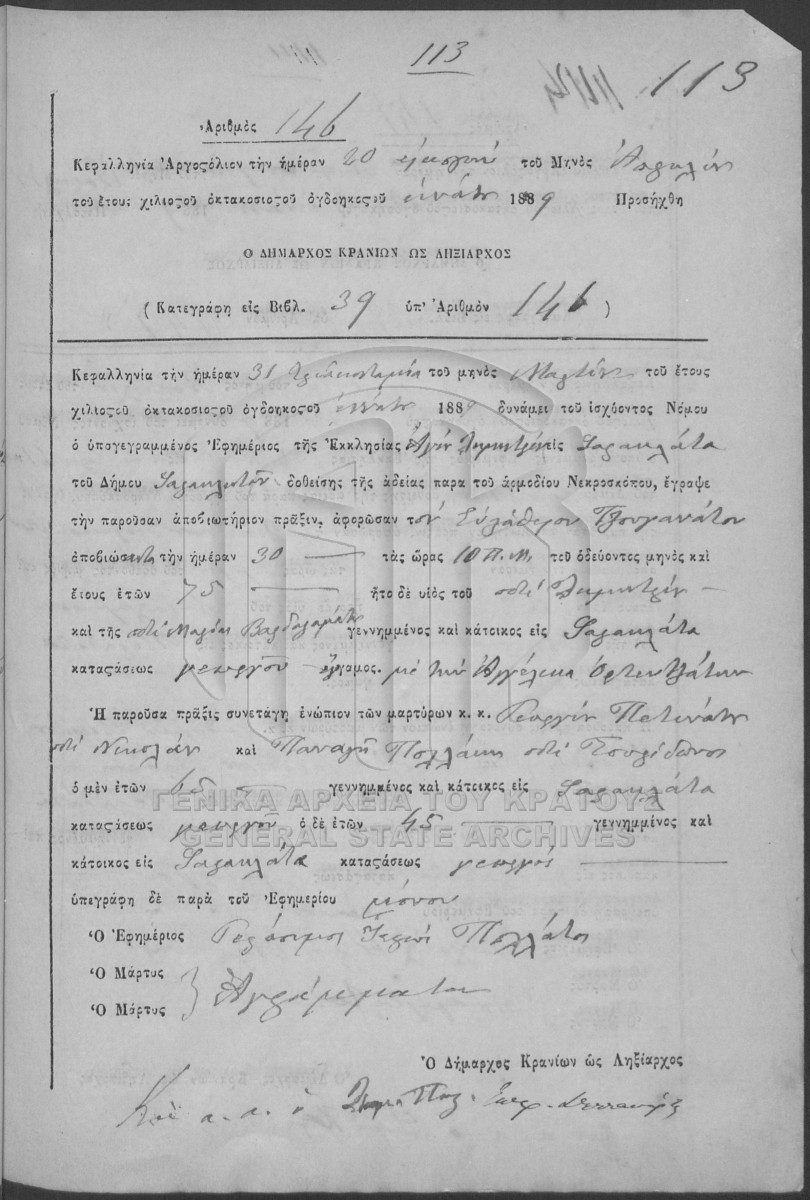 113
113
Ἀριθμὸς 146
Κεφαλληνία Ἀργοςόλιον τὴν ἡμέραν 20 εἰκοστήν τοῦ Μηνὸς Ἀπριλίου
τοῦ ἔτους χιλιοςοῦ ὀκτακοσιοςοῦ ὀγδοηκοςοῦ ἐνάτου 1889 Προσήχθη
Ο ΔΗΜΑΡΧΟΣ ΚΡΑΝΙΩΝ ΩΣ ΛΗΞΙΑΡΧΟΣ
(Κατεγράφη εἰς Βιβλ. 39 ὑπ' Ἀριθμὸν 146)
Κεφαλληνία τὴν ἡμέραν 31 τοῦ μηνὸς Μαρτίου τοῦ ἔτους
χιλιοςοῦ ὀκτακοσιοςοῦ ὀγδοηκοςοῦ ἐνάτου 1889 δυνάμει τοῦ ἰσχύοντος Νόμου
ὁ ὑπογεγραμμένος Ἐφημέριος τῆς Ἐκκλησίας Ἁγίου Δημητρίου εἰς Φαρακλάτα
τοῦ Δήμου δοθείσης τῆς ἀδείας παρα τοῦ ἁρμοδίου Νεκροσκόπου, ἔγραψε
τὴν παροῦσαν ἀποβιωτήριον πρᾶξιν, ἀφορῶσαν τὸν
ἀποβιώσαντα τὴν ἡμέραν 30 — τὰς ὥρας 10 π.μ. τοῦ ὁδεύοντος μηνὸς καὶ
ἔτους ἐτῶν 75 — ἦτο δὲ υἱὸς τοῦ ποτὲ Δημητρίου —
καὶ τῆς ποτὲ Μαρίας γεννημμένος καὶ κάτοικος εἰς Φαρακλάτα
καταςάσεως γεωργοῦ ἔγγαμος. μὲ τὴν Ἀγγέλικα
Ἡ παροῦσα πρᾶξις συνετάγη ἐνώπιον τῶν μαρτύρων κ. κ. Γεωργίου Πετινάτου
ποτὲ Νικολάου καὶ Παναγῆ Πολλάτου ποτὲ Σπυρίδωνος
ὁ μὲν ἐτῶν 65 – γεννημμένος καὶ κάτοικος εἰς Φαρακλάτα
ΓΕΝΙΚΑ ΑΡΧΕΙΑ ΤΟΥ ΚΡΑΤΟΥΣ
καταςάσεως γεωργοῦ ὁ δὲ ἐτῶν 45 — γεννημμένος καὶ
GENERAL STATE ARCHIVES
κάτοικος εἰς Φαρακλάτα καταςάσεως γεωργός —
ὑπεγράφη δὲ παρὰ τοῦ Ἐφημερίου μόνου
Ὁ Ἐφημέριος Γεράσιμος Ἱερεὺς Πολλάτος
Ὁ Μάρτυς
Ὁ Μάρτυς } Ἀγράμματοι
Ὁ Δήμαρχος Κρανίων ὡς Ληξίαρχος